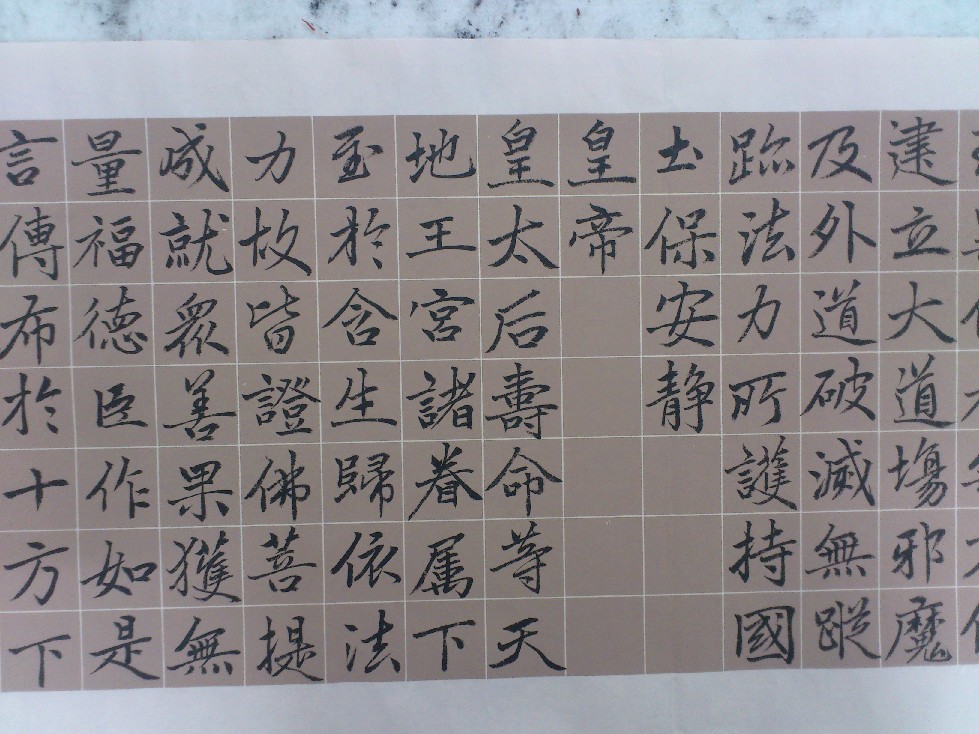 建立大道場邪魔
及外道破滅無蹤
跡法力所護持國
土保安静
皇帝
皇太后壽命等天
地王宮諸眷属下
至於含生歸依法
力故皆證佛菩提
成就眾善果獲無
量福德臣作如是
言傳布於十方下